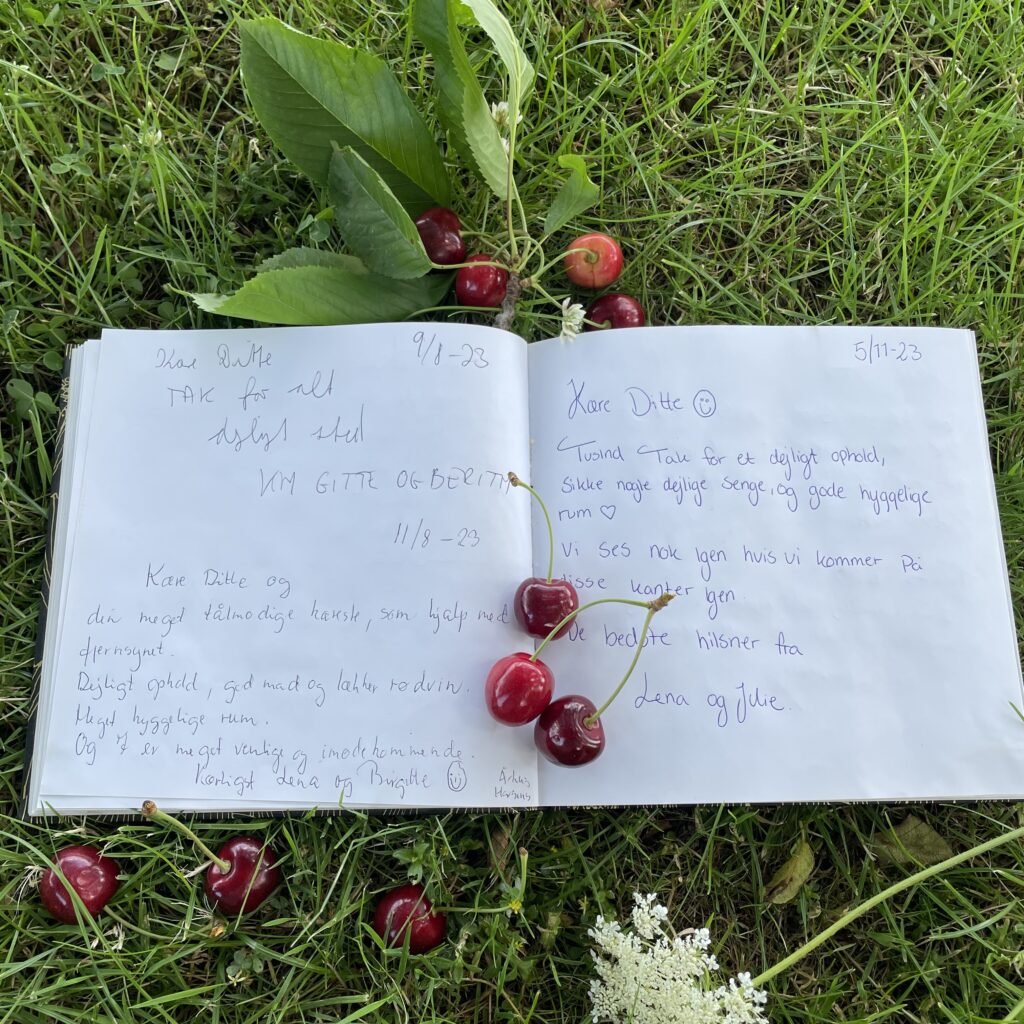 9/8-23
Kære Ditte
TAK for alt
dejligt sted
KH GITTE OG BERITH
11/8-23
Kære Ditte og
din meget tålmodige kæreste, som hjalp med
fjernsynet.
Dejligt ophold, god mad og lækker rødvin.
Meget hyggelige rum.
Og I er meget venlige og imødekommende.
Kærligst Lena og Birgitte
Århus
Horsens
5/11-23
Kære Ditte
Tusind Tak for et dejligt ophold,
Sikke nogle dejlige senge, og gode hyggelige
rum ♡
Vi ses nok igen hvis vi kommer På
disse kanter igen.
De bedste hilsner fra
Lena og Julie.